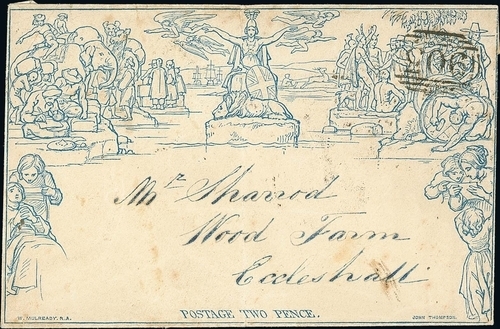 906
Mr Sharrod
Wood Farm
Eccleshall
POSTAGE TWO PENCE.
W. MULREADY, R.A.
JOHN THOMPSON.